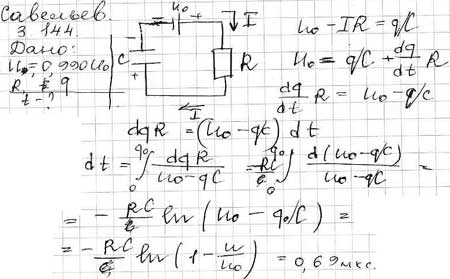 Савельев.
3.144.
Дано:
U₀=0,990U₀
R, q
t - ?
u₀ - + I
C - + R
I
u₀ - IR = q/C
u₀ = q/C + dq/dt R
dq/dt R = u₀ - q/c
dqR = (u₀ - q/c) dt
dt = ∫₀^q₀ dqR/(u₀ - qC) = RC ∫₀^q₀ d(u₀ - q/C)/(u₀ - qC) =
= - RC ln (u₀ - q₀/C) =
= - RC ln (1 - u/u₀) = 0,69 мкс.